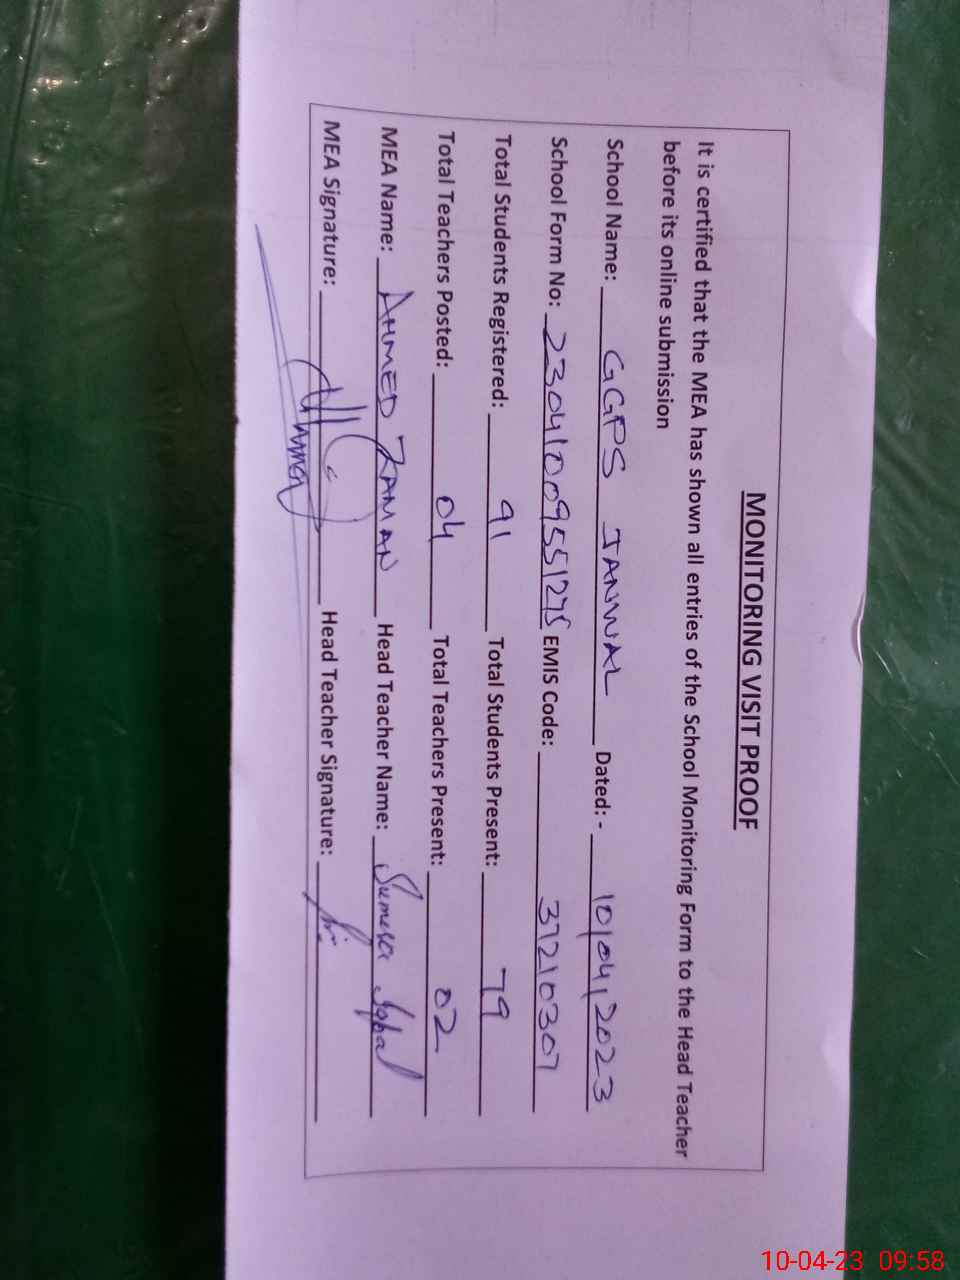 MONITORING VISIT PROOF
It is certified that the MEA has shown all entries of the School Monitoring Form to the Head Teacher
before its online submission
School Name: GGPS JANWAL Dated:- 10/04/2023
School Form No: 23041009551275 EMIS Code: 37210307
Total Students Registered: 91 Total Students Present: 79
Total Teachers Posted: 04 Total Teachers Present: 02
MEA Name: AHMED ZAMAN Head Teacher Name: Sumera Iqbal
MEA Signature: Head Teacher Signature:
10-04-23 09:58